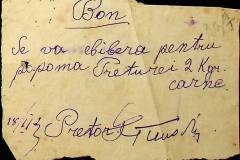 Bon
Se va elibera pentru
popoma Preturei 2 Kgr.
carne.
Pretor